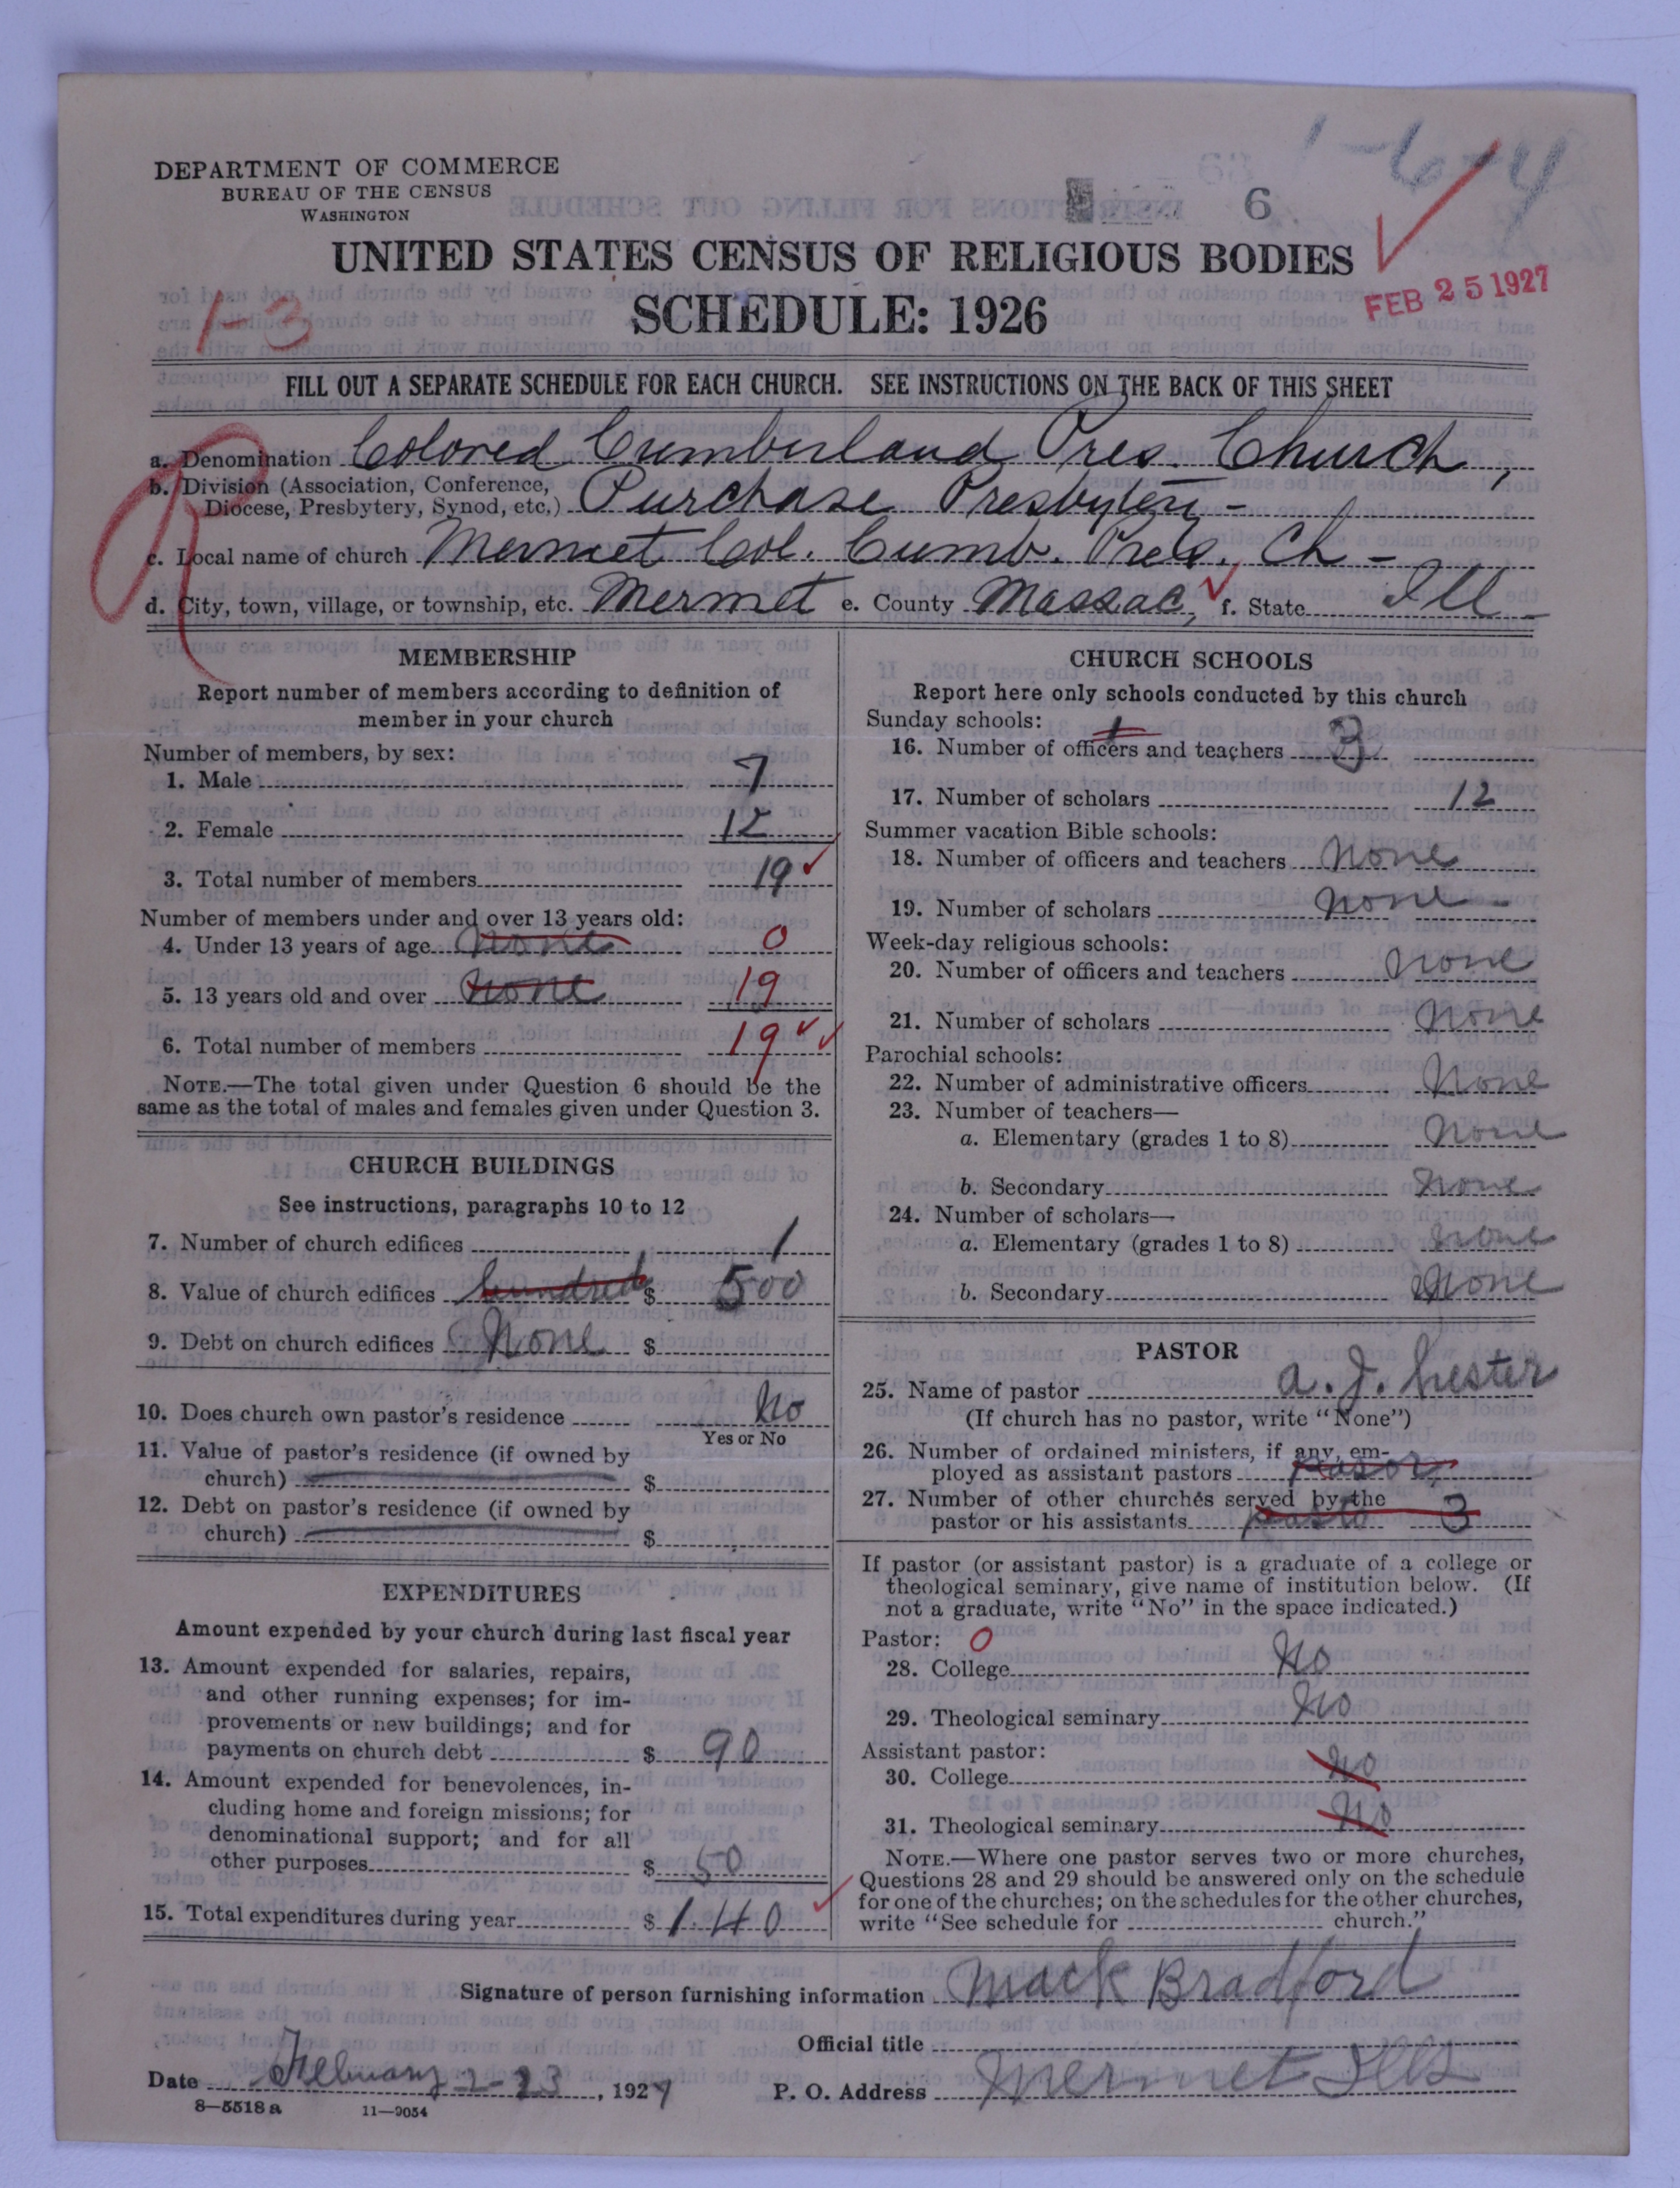 1-6-4
DEPARTMENT OF COMMERCE
BUREAU OF THE CENSUS
WASHINGTON
6
UNITED STATES CENSUS OF RELIGIOUS BODIES
SCHEDULE: 1926
FEB 25 1927
1-3
FILL OUT A SEPARATE SCHEDULE FOR EACH CHURCH. SEE INSTRUCTIONS ON THE BACK OF THIS SHEET
a. Denomination Colored Cumberland Pres. Church,
b. Division (Association, Conference,
Diocese, Presbytery, Synod, etc.) Purchase Presbytery-
c. Local name of church Mermet Col. Cumb. Pres. Ch-
d. City, town, village, or township, etc. Mermet e. County Massac, f. State Ill
MEMBERSHIP
Report number of members according to definition of
member in your church
Number of members, by sex:
1. Male 7
2. Female 12
3. Total number of members 19
Number of members under and over 13 years old:
4. Under 13 years of age none 0
5. 13 years old and over none 19
6. Total number of members 19
NOTE.—The total given under Question 6 should be the
same as the total of males and females given under Question 3.
CHURCH BUILDINGS
See instructions, paragraphs 10 to 12
7. Number of church edifices 1
8. Value of church edifices hundred $ 500
9. Debt on church edifices None $
10. Does church own pastor's residence No
Yes or No
11. Value of pastor's residence (if owned by
church) $
12. Debt on pastor's residence (if owned by
church) $
EXPENDITURES
Amount expended by your church during last fiscal year
13. Amount expended for salaries, repairs,
and other running expenses; for im-
provements or new buildings; and for
payments on church debt $ 90
14. Amount expended for benevolences, in-
cluding home and foreign missions; for
denominational support; and for all
other purposes $ 50
15. Total expenditures during year $ 140
CHURCH SCHOOLS
Report here only schools conducted by this church
Sunday schools:
16. Number of officers and teachers 3
17. Number of scholars 12
Summer vacation Bible schools:
18. Number of officers and teachers none
19. Number of scholars none -
Week-day religious schools:
20. Number of officers and teachers none
21. Number of scholars none
Parochial schools:
22. Number of administrative officers None
23. Number of teachers—
a. Elementary (grades 1 to 8) none
b. Secondary none
24. Number of scholars—
a. Elementary (grades 1 to 8) none
b. Secondary none
PASTOR
25. Name of pastor A. J. Lester
(If church has no pastor, write "None")
26. Number of ordained ministers, if any, em-
ployed as assistant pastors
27. Number of other churches served by the
pastor or his assistants 3
If pastor (or assistant pastor) is a graduate of a college or
theological seminary, give name of institution below. (If
not a graduate, write "No" in the space indicated.)
Pastor: 0
28. College No
29. Theological seminary No
Assistant pastor:
30. College No
31. Theological seminary No
NOTE.—Where one pastor serves two or more churches,
Questions 28 and 29 should be answered only on the schedule
for one of the churches; on the schedules for the other churches,
write "See schedule for church."
Signature of person furnishing information Mack Bradford
Official title
Date February 2-23, 1927 P. O. Address Mermet Ills
8—5518 a 11—9054